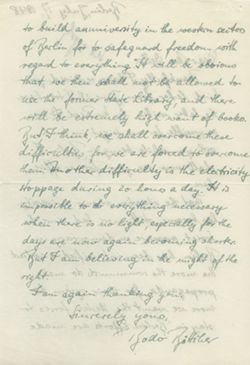 to build a university in the western sectors
of Berlin for to safeguard freedom with
regard to everything. It will be obvious
that we then shall not be allowed to
use the former State library, and there
will be extremely high want of books.
But I think, we shall overcome these
difficulties for we are forced to overcome
them. Another difficulty is the electricity
stoppage during 20 hours a day. It is
impossible to do everything necessary
when there is no light, especially for the
days are now again becoming shorter.
But I am believing in the might of
the right.
I am again thanking you.
Sincerely yours,
Bodo